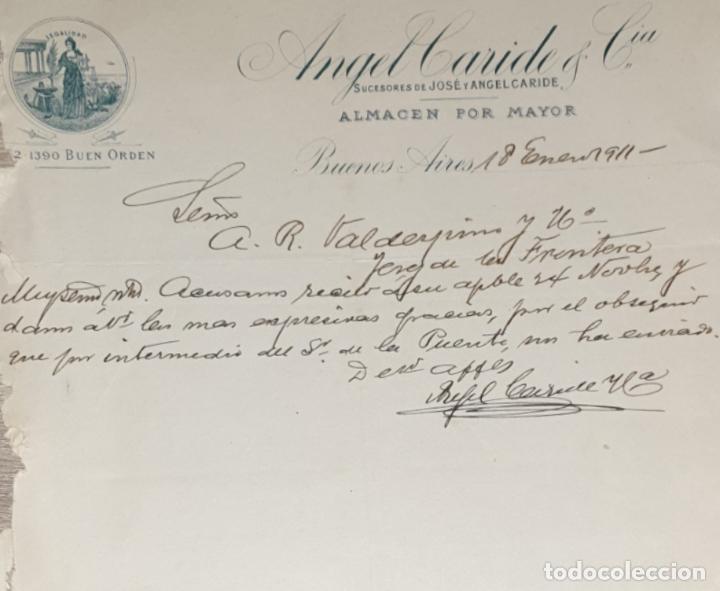 LEGALIDAD
Angel Caride & Cia
SUCESORES DE JOSÉ Y ANGEL CARIDE,
ALMACEN POR MAYOR
2 1390 BUEN ORDEN
Buenos Aires, 18 Enero 1911-
Señor
A. R. Valdespino y Hº
Jerez de la Frontera
Muy señor ntro. Acusamos recibo de su apble 24 Novbre y
damos á Vd las mas expresivas gracias, por el obsequio
que por intermedio del Sr. de la Puente, nos ha enviado.
De Vd affes
Angel Caride y Ca
todocoleccion.net